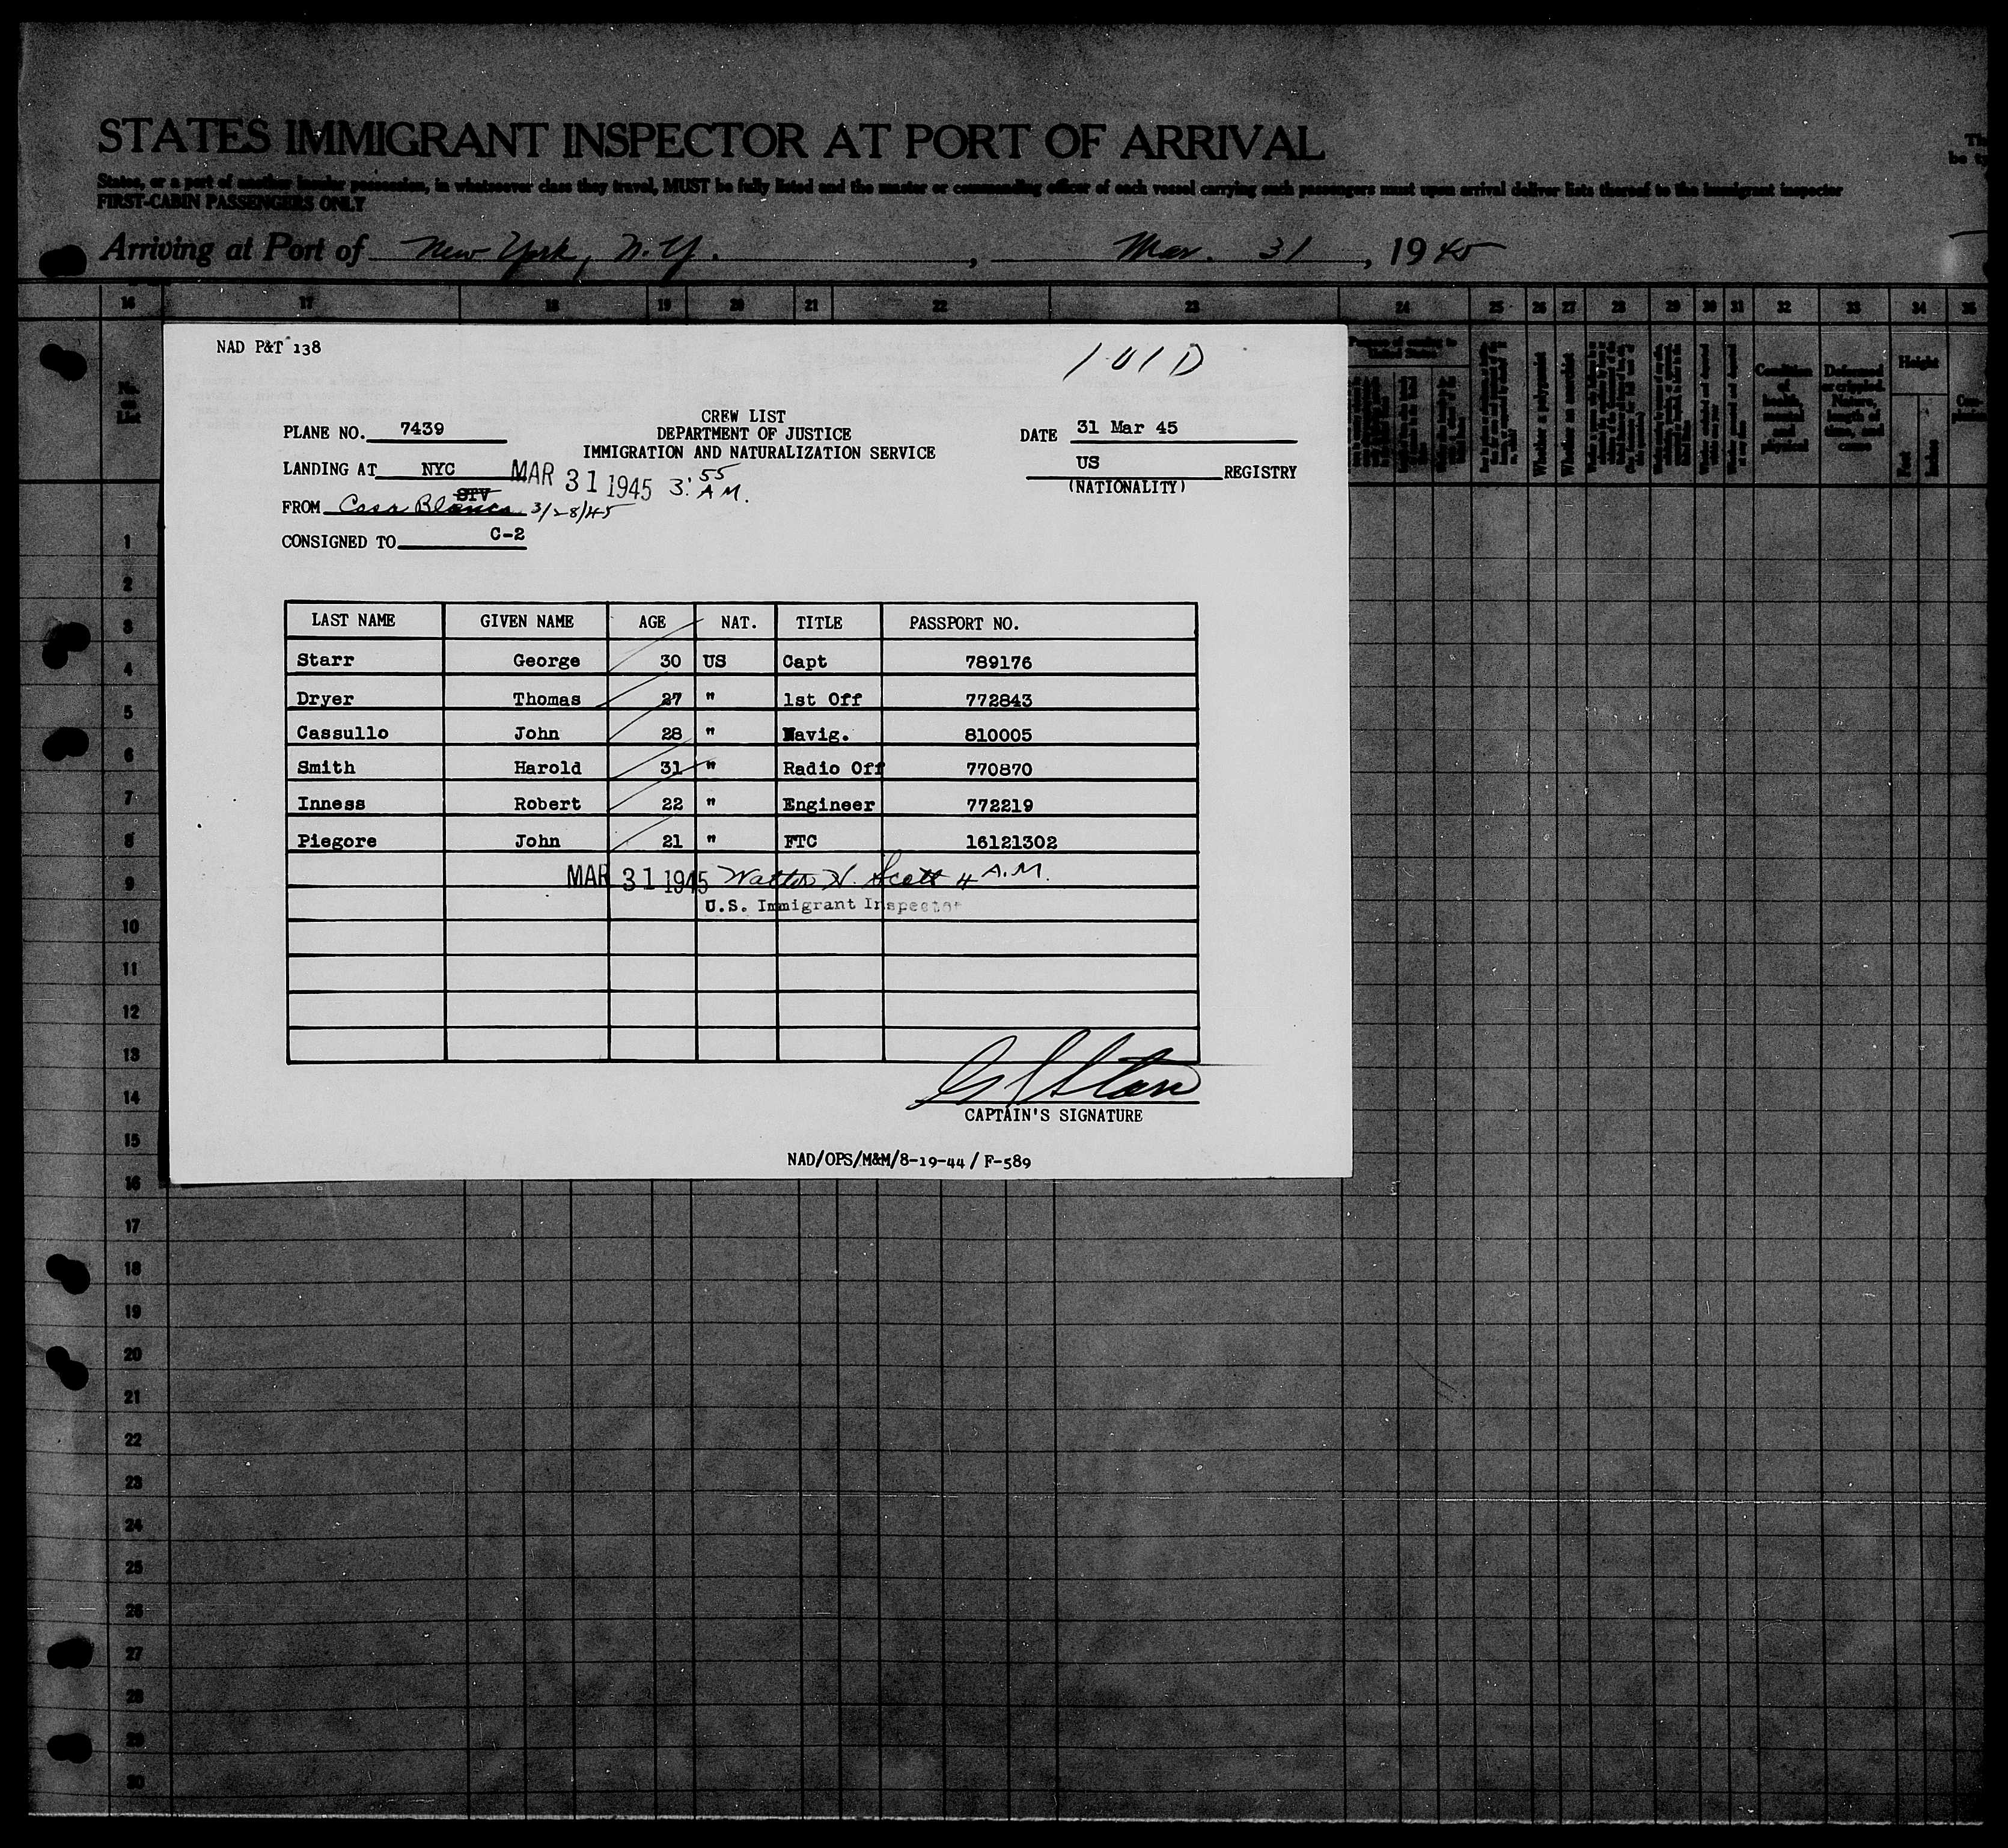 STATES IMMIGRANT INSPECTOR AT PORT OF ARRIVAL
States, or a port of another insular possession, in whatsoever class they travel, MUST be fully listed and the master or commanding officer of each vessel carrying such passengers must upon arrival deliver lists thereof to the immigrant inspector
FIRST-CABIN PASSENGERS ONLY
Arriving at Port of New York, N.Y. , Mar. 31 , 1945
16 17 18 19 20 21 22 23 24 25 26 27 28 29 30 31 32 33 34 35
No. on List
Whether a polygamist
Whether an anarchist
Condition of health
Deformed or crippled. Nature, length of time, and cause
Height
Feet
Inches
NAD P&T 138
101D
CREW LIST
PLANE NO. 7439 DEPARTMENT OF JUSTICE DATE 31 Mar 45
IMMIGRATION AND NATURALIZATION SERVICE
LANDING AT NYC MAR 31 1945 3:55 A.M. US REGISTRY
(NATIONALITY)
STV
FROM Casa Blanca 3/28/45
CONSIGNED TO C-2
LAST NAME GIVEN NAME AGE NAT. TITLE PASSPORT NO.
Starr George 30 US Capt 789176
Dryer Thomas 27 " 1st Off 772843
Cassullo John 28 " Navig. 810005
Smith Harold 31 " Radio Off 770870
Inness Robert 22 " Engineer 772219
Piegore John 21 " FTC 16121302
MAR 31 1945 Walter H. Scott 4 A.M.
U.S. Immigrant Inspector
G Starr
CAPTAIN'S SIGNATURE
NAD/OPS/M&M/8-19-44/ F-589
1
2
3
4
5
6
7
8
9
10
11
12
13
14
15
16
17
18
19
20
21
22
23
24
25
26
27
28
29
30